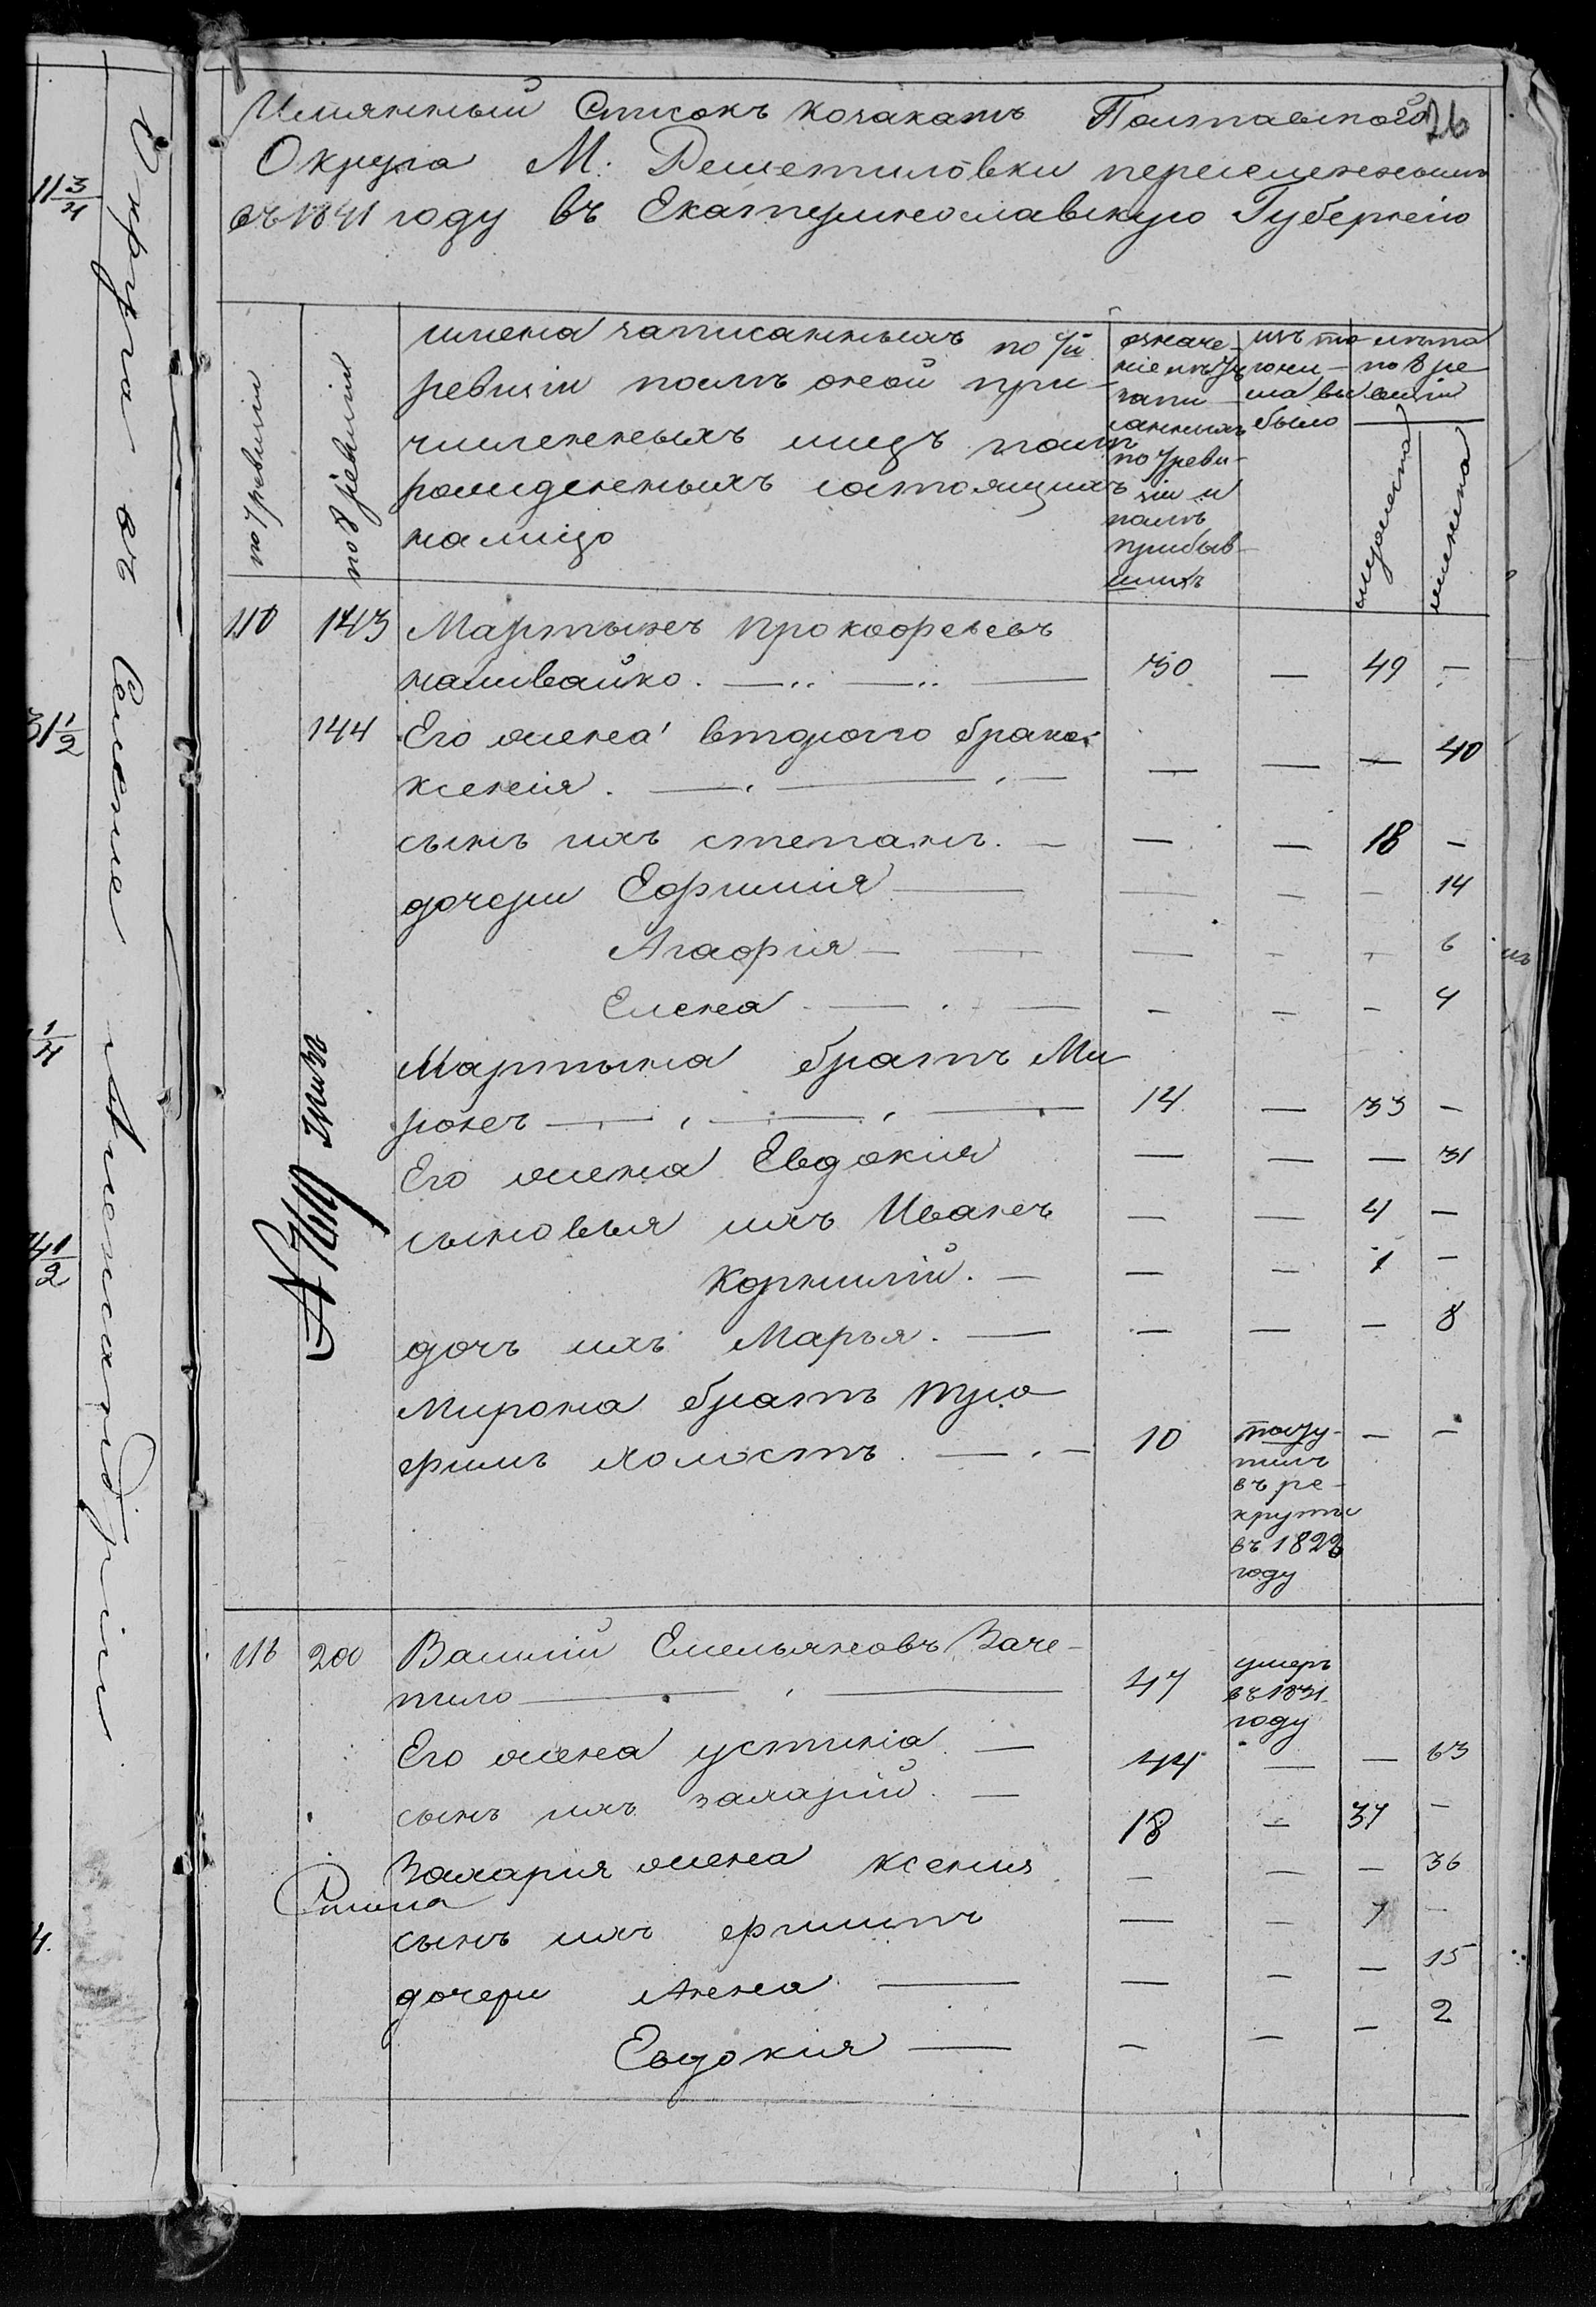 26
Имянный Списокъ козакамъ Полтавского
Округа М. Решетиловки переселеннымъ
въ 1841 году въ Екатеринославскую Губернію
по 7 ревизіи
по 8 ревизіи
имена записанныхъ по 7й
ревизіи послѣ оной при-
численныхъ лицъ послѣ
рожденныхъ состоящихъ
налицо
означе-
ніе лѣтъ
запи-
санныхъ
по 7 реви-
зіи и
послѣ
прибыв-
шихъ
изъ то
числа вы
было
лѣта
по 8 ре
визіи
мужеска
женска
110 143 Мартынъ Прокофьевъ
наливайко. 30 — 49 —
144 Его жена второго брака
ксенія. — — — 40
сынъ ихъ степанъ. — — 18 —
дочери Ефимія — — — 14
Агафія — — — 6
Елена — — — 4
Мартына братъ Ми
ронъ 14 — 33 —
Его жена Евдокия — — — 31
сыновья ихъ Иванъ — — 4 —
Корнилій. — — 1 —
дочь ихъ Марья. — — — 8
Мирона братъ тро
фимъ холостъ. 10 — —
посту-
пилъ
въ ре-
круты
въ 1822
году
116 200 Василій Емельяновъ Заче-
пило 47
умеръ
въ 1831
году
Его жена устинія — 44 — — 63
сынъ ихъ захарій. — 18 — 37 —
Захария жена ксения — — — 36
сынъ ихъ филипъ — — 7 —
дочери Анна — — — 15
Евдокия — — — 2
11 3/4
31 1/2
1/4
41 1/2
4.
Округа въ Селеніе